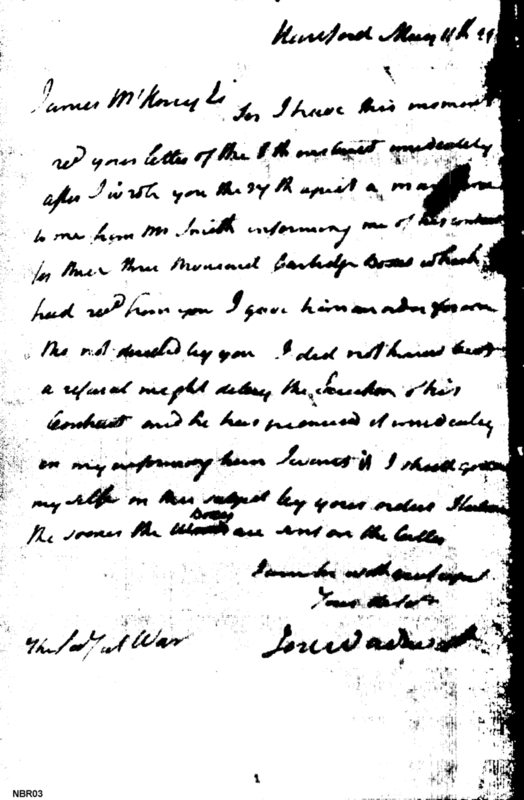 Hartford May 11th 29
James McHenry Es
Sir I have this moment
recd your letter of the 8th instant immediately
after I wrote you the 27th april a man
to me from Mr Smith informing me of his contract
for three thousand Cartridge Boxes which
had recd from you I gave him an order for
tho not directed by you I did not know but
a refusal might delay the Execution of his
Contract and he has promised it immediately
on my informing him I want it I shall govern
my self on this subject by your orders I
the sooner the Boxes are sent on the better
I am Sir with
Your
The Sec of War
Jere Wadsworth
1
NBR03